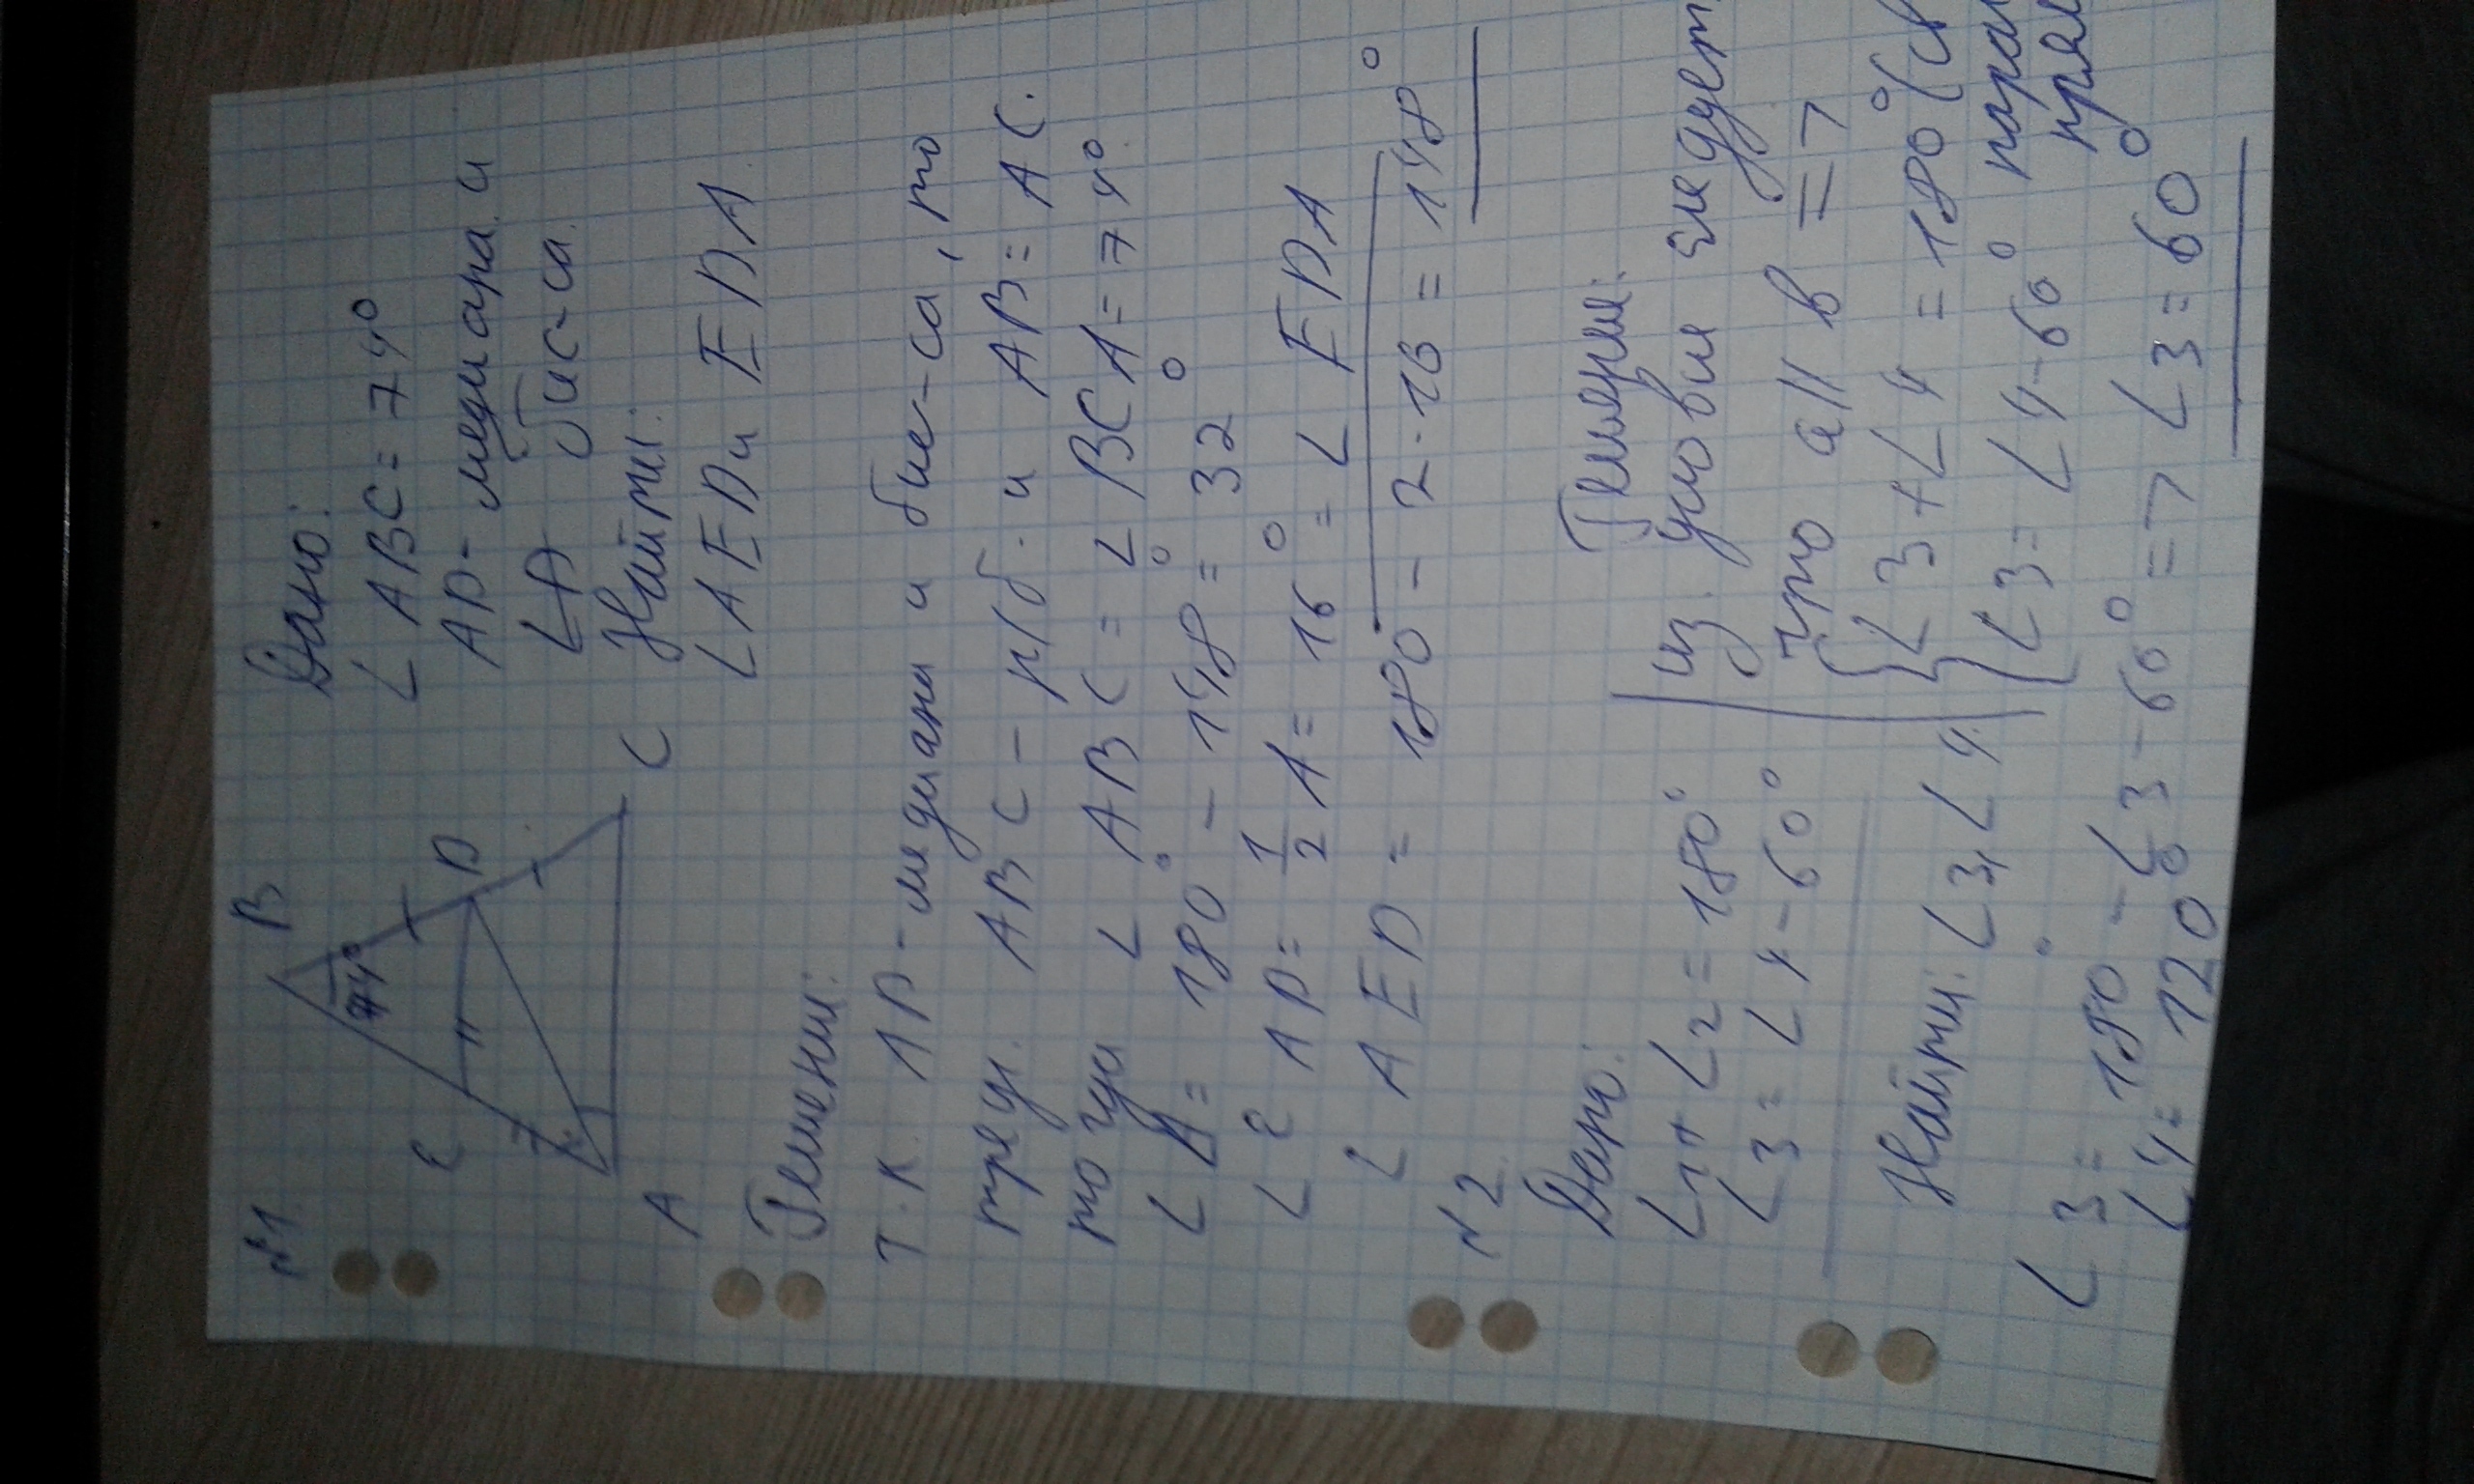 №1.
B
74°
E
D
A
C
Дано:
∠ABC = 74°
AD - медиана и
∠A бис-са.
Найти:
∠AED и EDA
Решении:
Т.К. AD - медиана и бис-са, то
треу. ABC - р/б. и AB = AC.
тогда ∠ABC = ∠BCA = 74°
∠A = 180° - 148° = 32°
∠EAD = 1/2 A = 16° = ∠EDA
∠AED = 180 - 2·16 = 148°
№2.
Дано:
∠1 + ∠2 = 180°
∠3 = ∠4 - 60°
Найти: ∠3, ∠4.
Решении:
из условия следует
что a || b =>
{∠3 + ∠4 = 180° (
{∠3 = ∠4 - 60°
∠3 = 180° - ∠3 - 60° => ∠3 = 60°
∠4 = 120°